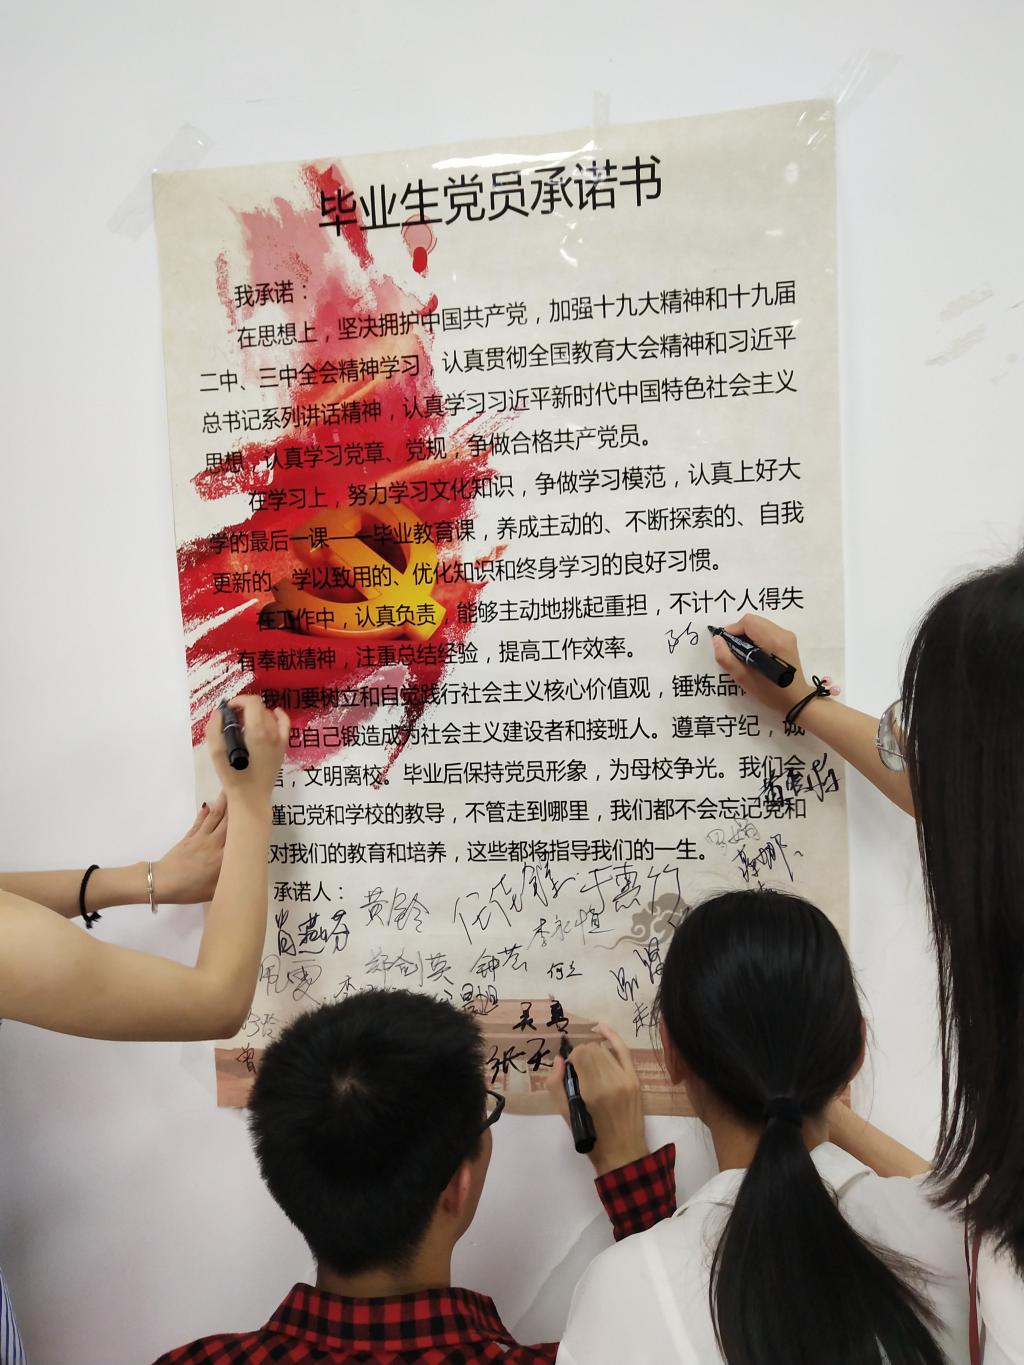 毕业生党员承诺书
我承诺：
在思想上，坚决拥护中国共产党，加强十九大精神和十九届
二中、三中全会精神学习，认真贯彻全国教育大会精神和习近平
总书记系列讲话精神，认真学习习近平新时代中国特色社会主义
思想，认真学习党章、党规，争做合格共产党员。
在学习上，努力学习文化知识，争做学习模范，认真上好大
学的最后一课——毕业教育课，养成主动的、不断探索的、自我
更新的、学以致用的、优化知识和终身学习的良好习惯。
在工作中，认真负责，能够主动地挑起重担，不计个人得失
，有奉献精神，注重总结经验，提高工作效率。
我们要树立和自觉践行社会主义核心价值观，锤炼品
把自己锻造成为社会主义建设者和接班人。遵章守纪，诚
信，文明离校。毕业后保持党员形象，为母校争光。我们会
谨记党和学校的教导，不管走到哪里，我们都不会忘记党和
对我们的教育和培养，这些都将指导我们的一生。
承诺人：
黄铃
肖燕芬
李永恒
郑剑英
钟芸
何立
吴真
张天